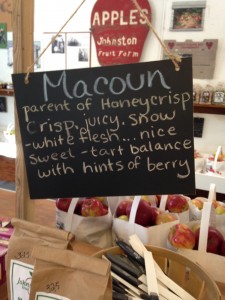 APPLES
Johnston
Fruit Farm
Macoun
parent of Honeycrisp
Crisp, juicy, snow
-white flesh...nice
sweet-tart balance
with hints of berry